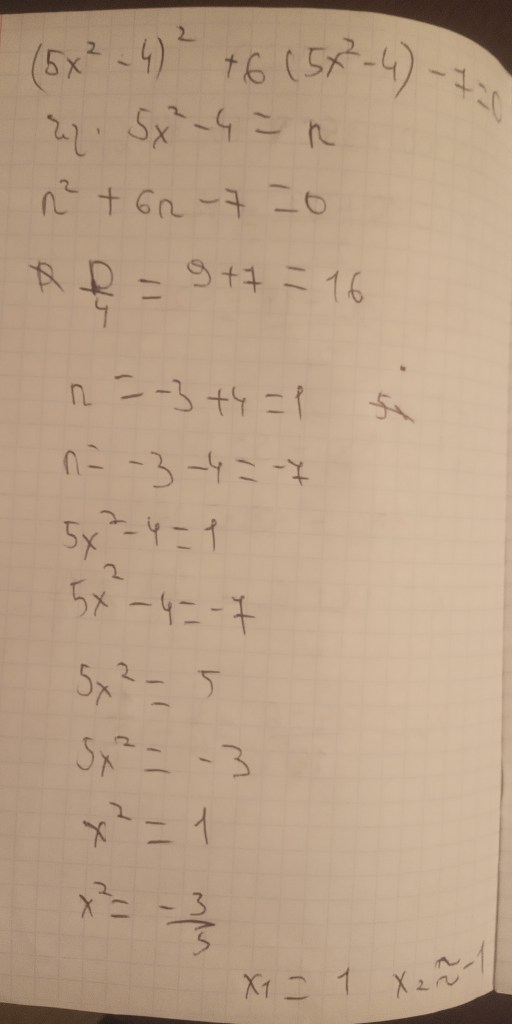 (5x² - 4)² + 6 (5x² - 4) - 7 = 0
5x² - 4 = n
n² + 6n - 7 = 0
D/4 = 9 + 7 = 16
n = -3 + 4 = 1
n = -3 - 4 = -7
5x² - 4 = 1
5x² - 4 = -7
5x² = 5
5x² = -3
x² = 1
x² = -3/5
x₁ = 1 x₂ ≈ -1